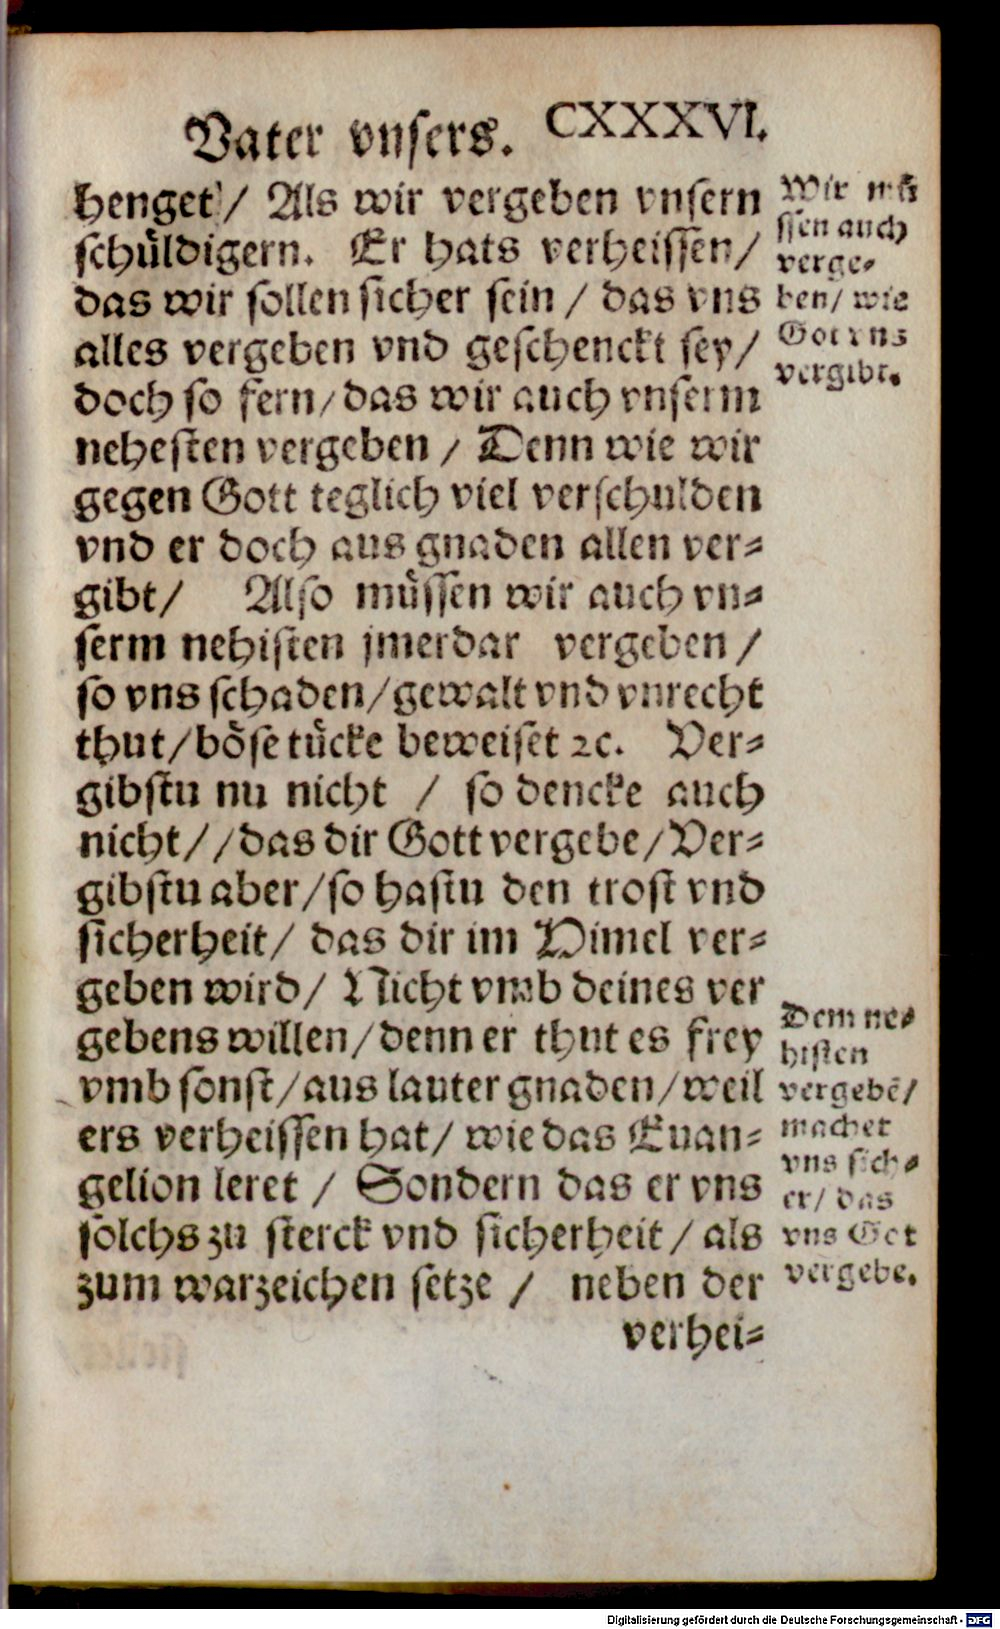 Vater vnsers. CXXXVI.
henget / Als wir vergeben vnsern
schüldigern. Er hats verheissen /
das wir sollen sicher sein / das vns
alles vergeben vnd geschenckt sey /
doch so fern / das wir auch vnserm
nehesten vergeben / Denn wie wir
gegen Gott teglich viel verschulden
vnd er doch aus gnaden allen ver⸗
gibt / Also müssen wir auch vn⸗
serm nehisten jmerdar vergeben /
so vns schaden / gewalt vnd vnrecht
thut / böse tücke beweiset ꝛc. Ver⸗
gibstu nu nicht / so dencke auch
nicht / / das dir Gott vergebe / Ver⸗
gibstu aber / so hastu den trost vnd
sicherheit / das dir im Himel ver⸗
geben wird / Nicht vmb deines ver
gebens willen / denn er thut es frey
vmb sonst / aus lauter gnaden / weil
ers verheissen hat / wie das Euan⸗
gelion leret / Sondern das er vns
solchs zu sterck vnd sicherheit / als
zum warzeichen setze / neben der
verhei⸗
Wir mü
ssen auch
verge⸗
ben / wie
Got vns
vergibt.
Dem ne⸗
histen
vergebē /
machet
vns sich⸗
er / das
vns Got
vergebe.
Digitalisierung gefördert durch die Deutsche Forschungsgemeinschaft - DFG